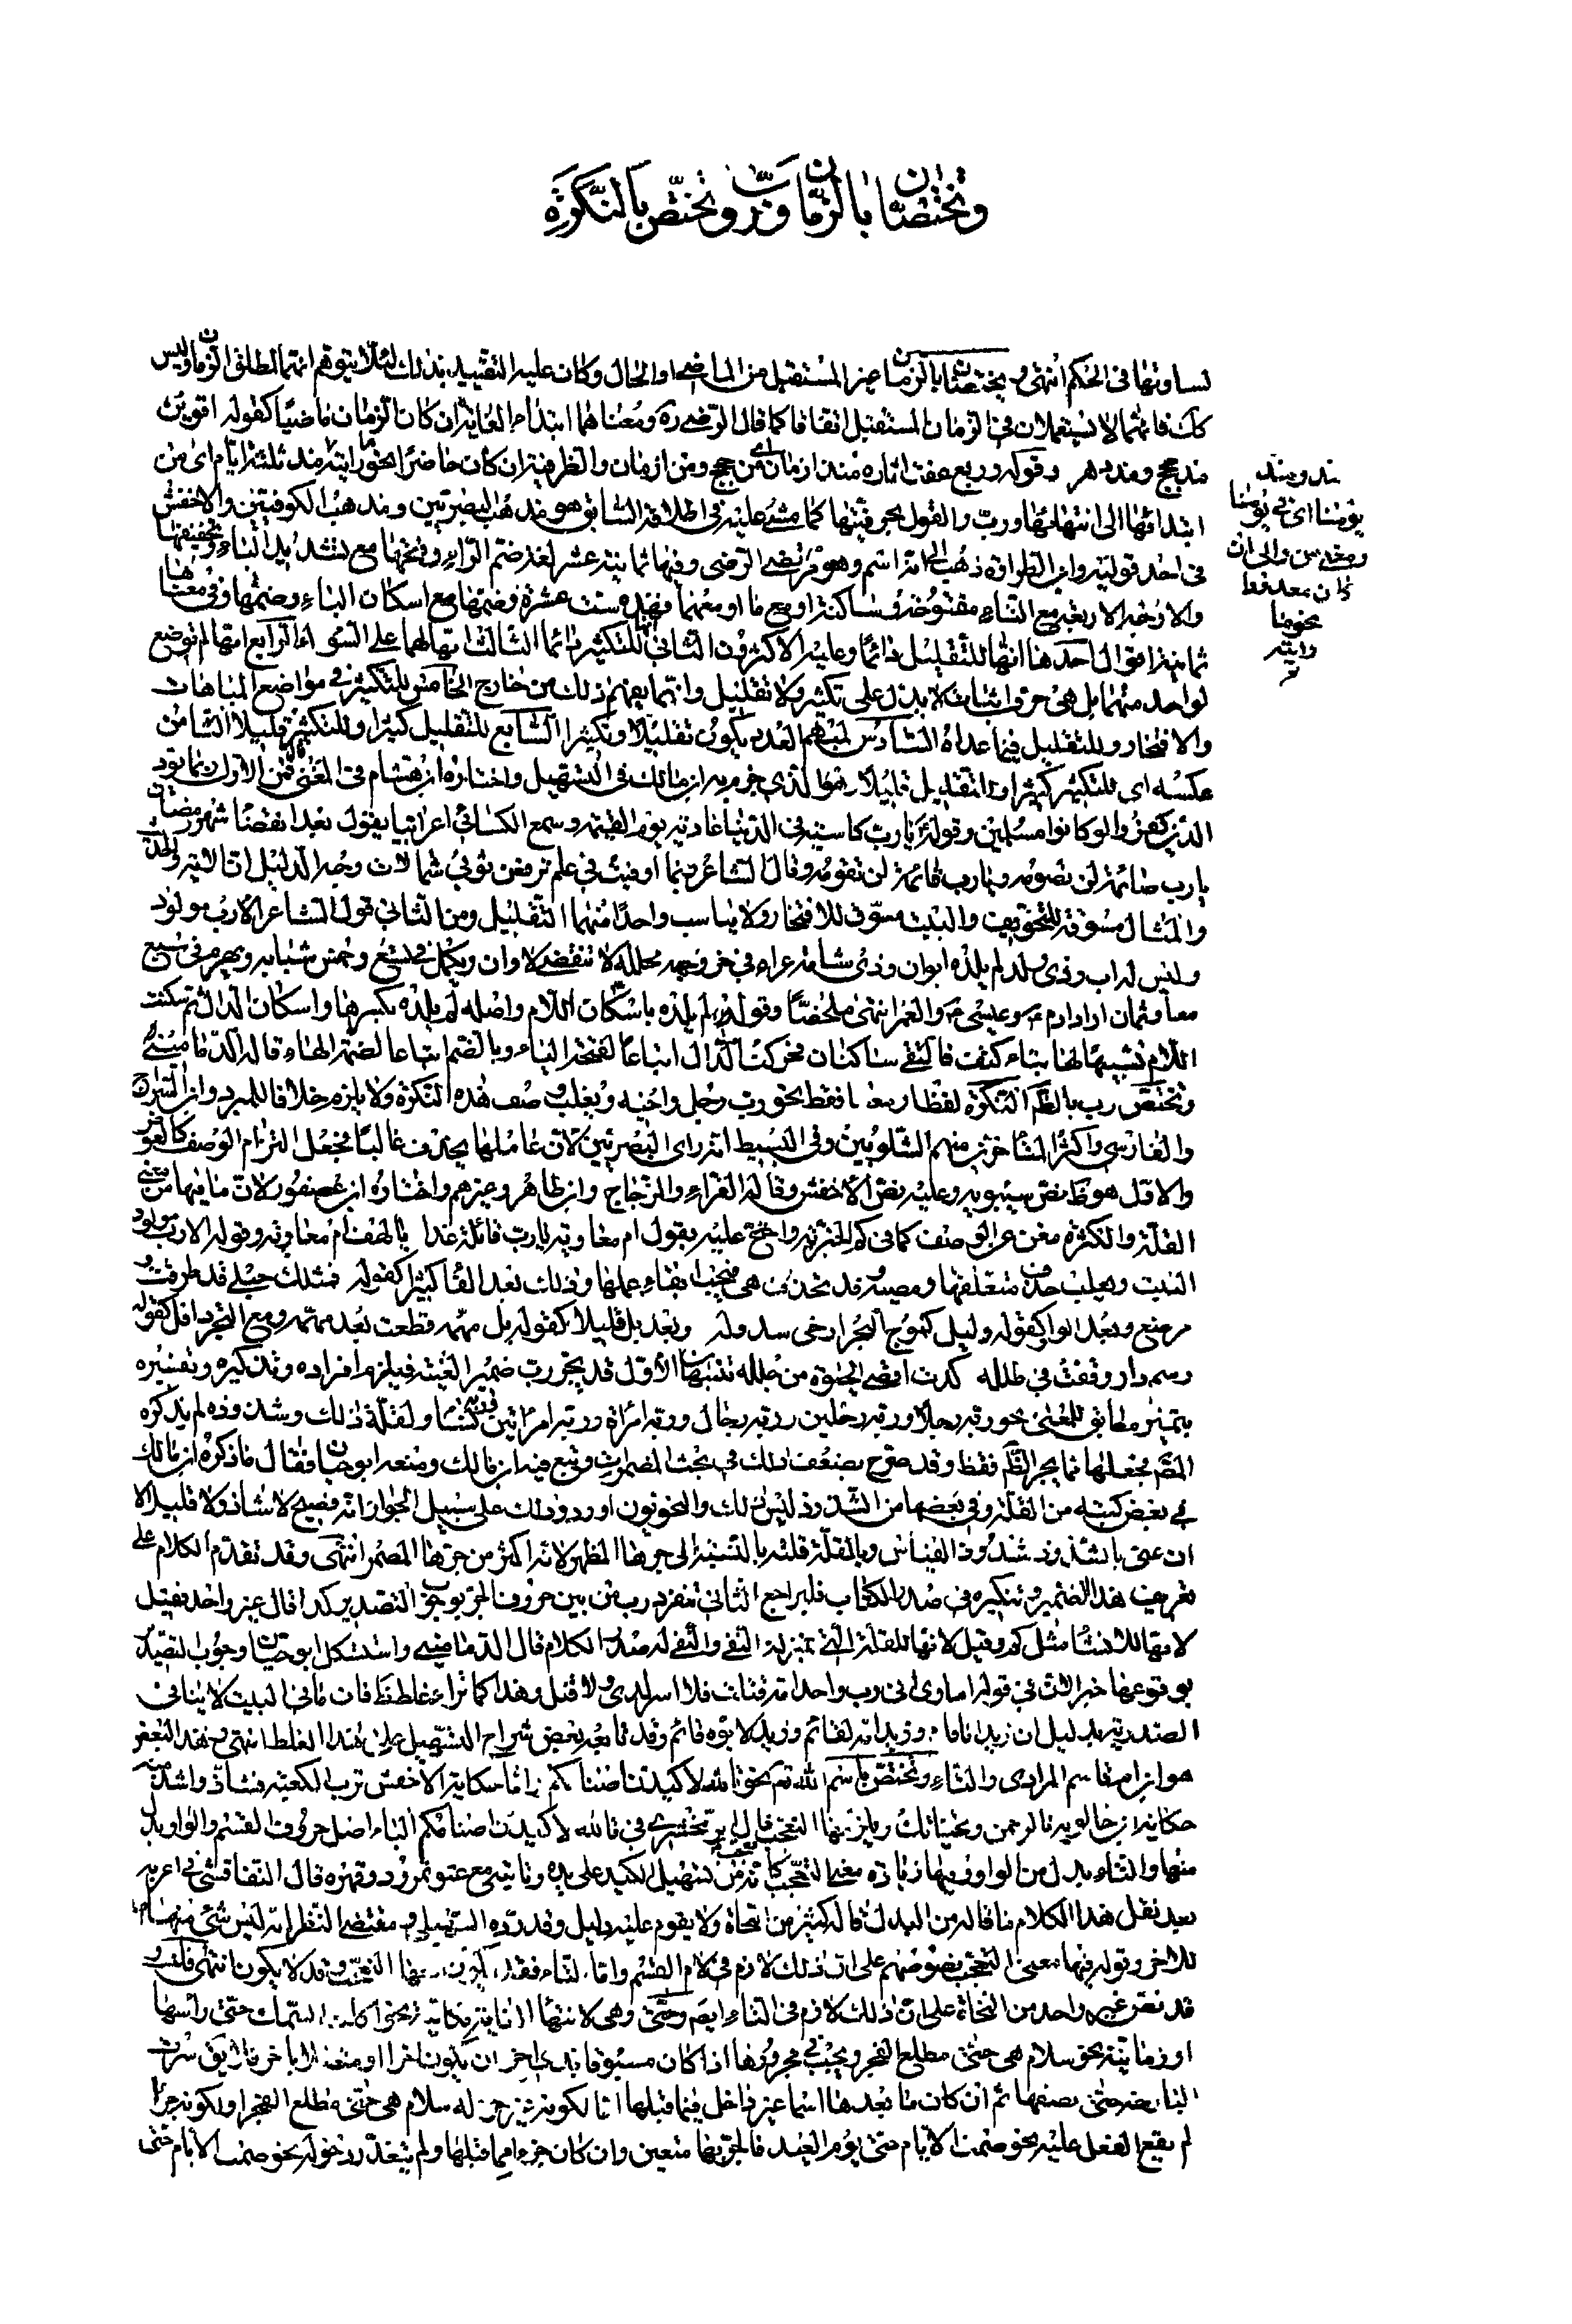 وتختصّان بالزّمان وربّ وتختصّ بالنّكرة
تساويها في الحكم انتهى وتختصّان بالزمان غير المستقبل من الماضي او الحال وكان عليه التقييد بذلك لئلّا يتوهم انهما لمطلق الزمان وليس
كك فانهما لا يستعملان في الزمان المستقبل اتفاقا كما قال الرّضي ره ومعناهما ابتداء الغاية ان كان الزمان ماضيًا كقوله اقوين
مذ حجج ومذ دهر وقوله وربع عفت اثاره منذ ازمان اي من حجج ومن ازمان والظرفية ان كان حاضرًا نحو ما رايته مذ ثلثة ايّام اى من
ابتدائها الى انتهائها وربّ والقول بحرفيّتها كما مشى عليه في اطلاقه السّابق هو مذهب البصريّين ومذهب الكوفيّين والاخفش
في احد قوليه وابن الطراوة ذهب الى انه اسم وهو مرتضى الرضي وفيها ثمانية عشر لغة ضمّ الرّاء وفتحها مع تشديد الباء وتخفيفها
والاوجه الاربعة مع التاء مفتوحة وساكنة او مع ما او معهما فهذه ست عشرة وضمّها مع اسكان الباء وضمّها وفي معناها
ثمانية اقوال احدها انها للتقليل دائمًا وعليه الاكثرون الثاني للتكثير دائما الثالث انها لهما على السّواء الرابع انها لم توضع
لواحد منهما بل هي حرف اثبات لا يدل على تكثير ولا تقليل وانما يفهم ذلك من خارج الخامس للتكثير في مواضع المباهات
والافتخار وللتقليل فيما عداه السّادس لمبهم العدد يكون تقليلًا وتكثيرا السّابع للتقليل كثيرا وللتكثير قليلا الثّامن
عكسه اى للتكثير كثيرا وللتقليل قليلًا وهو الذي جزم به ابن مالك في التسهيل واختاره ابن هشام في المغني فمن الاول ربما يود
الذين كفروا لو كانوا مسلمين وقوله ع يا ربّ كاسية في الدّنيا عارية يوم القيمة وسمع الكسائي اعرابيا يقول بعد انقضاء شهر رمضان
يا رب صائمه لن يصومه ويا رب قائمه لن يقومه وقال الشاعر ربما اوفيت في علم ترفعن ثوبي شمالات وجه الدليل ان الاية والحديث
والمثال مسوقة للتخويف والبيت مسوق للافتخار ولا يناسب واحدًا منهما التقليل ومن الثاني قول الشاعر الا رب مولود
وليس له اب وذي ولد لم يلده ابوان وذي شامة غراء في حر وجهه مجللة لا تنقضي لاوان ويكمل في تسع وخمس شبابه ويهرم في سبع
معا وثمان اراد ادم ع وعيسى ع والقمر انتهى ملخصًا وقوله لم يلده باسكان اللّام واصله لم يلده بكسرها واسكان الدال ثم سكنت
اللّام تشبيهًا لها بتاء كتف فالتقى ساكنان فحركت الدال اتباعًا لفتحة الياء وبالضم اتباعا لضمة الهاء قاله الدّماميني
وتختصّ رب بالظّم النّكرة لفظا ومعنا فقط نحو رب رجل واخيه ويغلب وصف هذه النّكرة ولا يلزم خلافا للمبرد وابن السّراج
والفارسي واكثر المتاخرين منهم الشّلوبين وفي البسيط انه راى البصريّين لان عاملها يحذف غالبًا فجعل التزام الوصف كالعوض
والاول هو ظ نص سيبويه وعليه نصّ الاخفش وقاله الفرّاء والزّجاج وابن طاهر وغيرهم واختاره ابن عصفور لانّ ما فيها من معنى
القلّة والكثرة مغن عن الوصف كما في كم الخبريّة واحتج عليه بقول ام معاوية يا ربّ قائلة غدا يا لهف ام معاوية وقوله الا رب مولود
البيت ويغلب حذف متعلّقها ومضيه وقد تحذف هي فيجب ابقاء عملها وذلك بعد الفاء كثيرا كقوله فمثلك حبلى قد طرقت و
مرضع وبعد الواو كقوله وليل كموج البحر ارخى سدوله وبعد بل قليلا كقوله بل مهمه قطعت بعد مهمه ومع التجرد اقل كقوله
رسم دار وقفت في طلله كدت اقضي الحيوة من جلله تنبيهان الاوّل قد يجرّ رب ضمير الغيبة فيلزم افراده وتذكيره وتفسيره
بتمييز مطابق للمعنى نحو ربه رجلا وربه رجلين وربه رجال وربه امرأة وربه امرأتين وربه نساء ولقلّة ذلك وشذوذه لم يذكره
المصّ فجعلها مما يجر الظّم فقط وقد صرّح بضعف ذلك في بحث المضمرات وتبع فيه ابن مالك ومنعه ابو حيان فقال ما ذكره ابن مالك
في بعض كتبه من القلّة وفي بعضها من الشّذوذ ليس كذلك والنحويون اوردوا ذلك على سبيل الجواز انه فصيح لا شاذ ولا قليل الا
ان عنى بالشذوذ شذوذ القياس وبالقلّة قلته بالنّسبة الى جرها المظهر لانه اكثر من جرها المضمر انتهى وقد تقدّم الكلام على
تعريف هذا الضمير وتنكيره في صدر الكتاب فليراجع الثاني تنفرد رب من بين حروف الجر بوجوب التصدير كذا قال غير واحد فقيل
لانها للانشاء مثل كم وقيل لانها للقلة التي بمنزلة النفي والنفي له صدر الكلام قال الدماميني واستشكل ابو حيان وجوب التصدير
بوقوعها خبرا لان في قوله اماوي اني رب واحد امه قتلت فلا اسر لدي ولا قتل وهذا كما تراه غلط ظ فان ما في البيت لا ينافي
الصدرية بدليل ان زيدا ما قام وزيد انه لقائم وزيد لا بوه قائم وقد تابعه بعض شراح التسهيل على هذا الغلط انتهى وهذا البعض
هو ابن ام قاسم المرادي والتاء وتختصّ باسم الله تعم نحو تالله لاكيدن اصنامكم واما حكاية الاخفش ترب الكعبة فشاذ واشذ منه
حكاية ابن خالويه تالرحمن وتحياتك ويلزمها التعجب قال الزمخشري في تالله لاكيدن اصنامكم الباء اصل حروف القسم والواو بدل
منها والتاء بدل من الواو وفيها زيادة معنى التعجب كانه تعجب من تسهيل الكيد على يده وتاتيه مع عتو نمرود وقهره قال التفاقسي في اعرابه
بعد نقل هذا الكلام ما قاله من البدل قاله كثير من النحاة ولا يقوم عليه دليل وقد ردّه السّهيلي ومقتضى النظر انه ليس شئ منها اصلا
للاخر وقوله فيها معنى التعجب نصوصهم على ان ذلك لازم في لام القسم واما التاء فقد يكون معها التعجب وقد لا يكون انتهى قلت و
قد نص غير واحد من النحاة على ان ذلك لازم في التاء ايضم وحتّى وهي لانتهاء الغاية مكانية نحو اكلت السّمك حتّى راسها
او زمانية نحو سلام هي حتى مطلع الفجر ويجب في مجرورها اذا كان مسبوقا بذي اجزاء ان يكون اخرا او متصلا باخر
البارحة حتى نصفها ثم ان كان ما بعدها اسما غير داخل فيما قبلها اما لكونه غير جزء له سلام هي حتى مطلع الفجر او لكونه جزءا
لم يقع الفعل عليه نحو صمت الايّام حتى يوم العيد فالجر بها متعين وان كان جزءا مما قبلها ولم يتعذّر دخوله نحو صمت الايام حتى
مذ ومنذ
يومنا اى في يومنا
وبمعنى من والى ان
كان معدودا
نحو ما
رايته